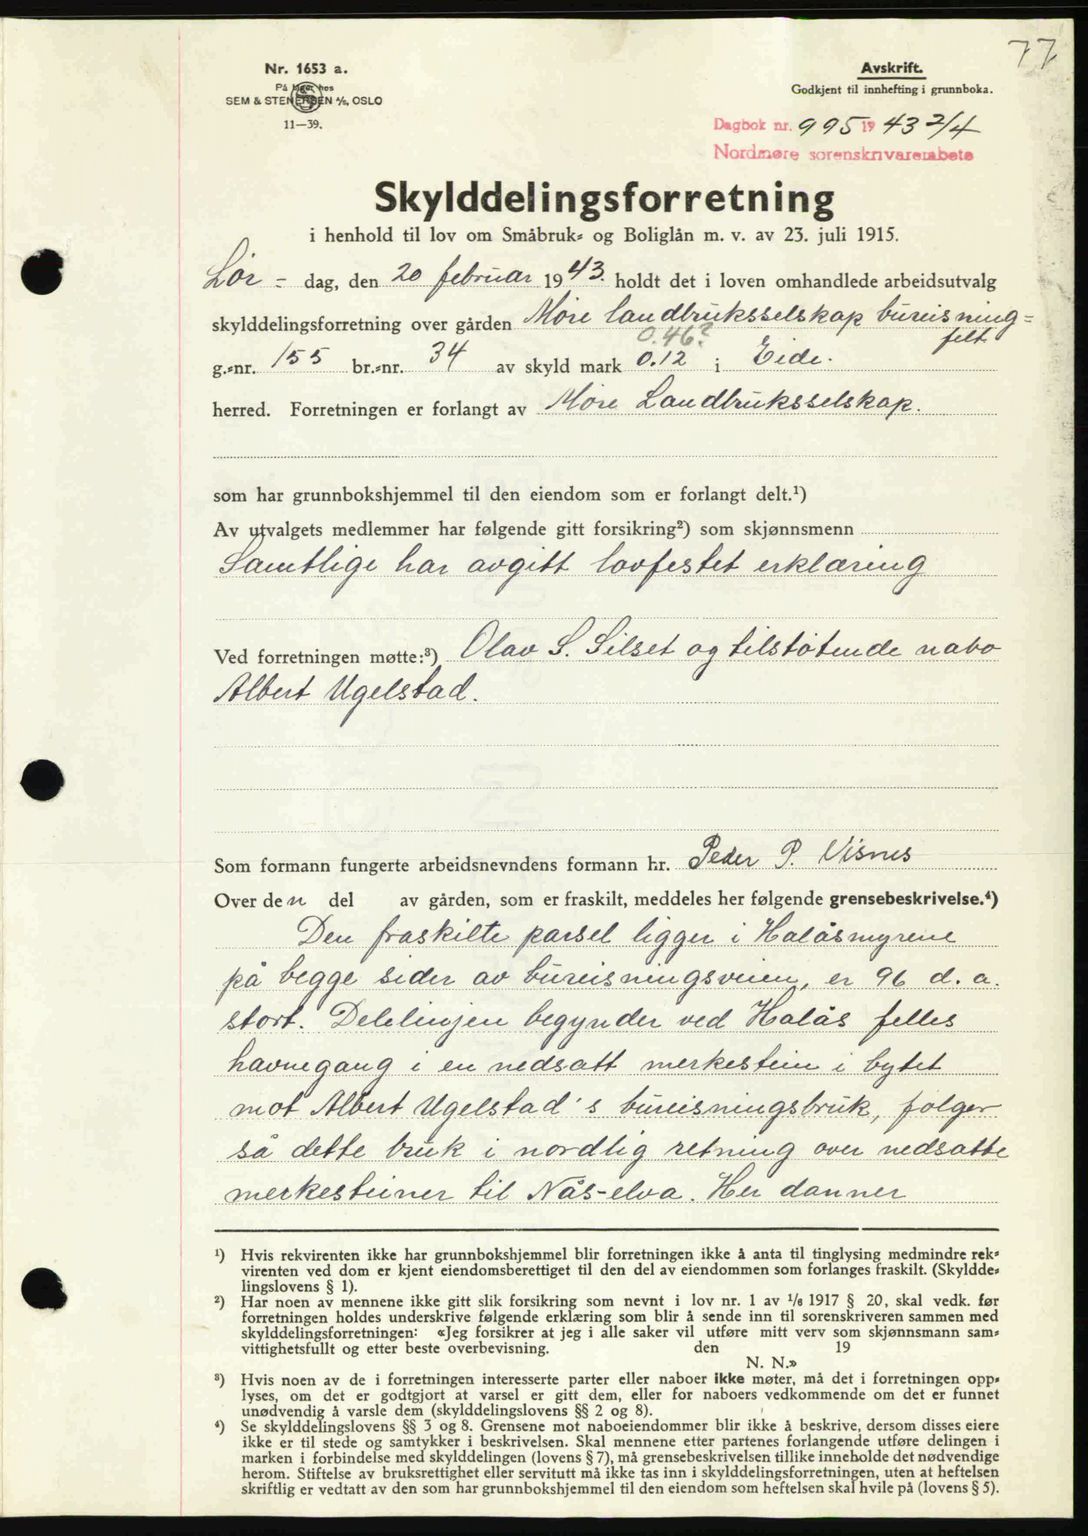 77
Nr. 1653 a.
På lager hos
SEM & STENERSEN A/S, OSLO
11—39.
Avskrift.
Godkjent til innhefting i grunnboka.
Dagbok nr. 995 19 43 2/4
Nordmøre sorenskriverembete
Skylddelingsforretning
i henhold til lov om Småbruk- og Boliglån m. v. av 23. juli 1915.
Lør - dag, den 20 februar 1943. holdt det i loven omhandlede arbeidsutvalg
skylddelingsforretning over gården Møre landbruksselskap bureisning=
felt
0.46?
g.-nr. 155 br.-nr. 34 av skyld mark 0.12 i Eide.
herred. Forretningen er forlangt av Møre Landbruksselskap.
som har grunnbokshjemmel til den eiendom som er forlangt delt.¹)
Av utvalgets medlemmer har følgende gitt forsikring²) som skjønnsmenn
Samtlige har avgitt lovfestet erklæring
Ved forretningen møtte:³) Olav S. Silset og tilstøtende nabo
Albert Ugelstad.
Som formann fungerte arbeidsnevndens formann hr. Peder P. Visnes
Over den del av gården, som er fraskilt, meddeles her følgende grensebeskrivelse.⁴)
Den fraskilte parsel ligger i Halåsmyrene
på begge sider av bureisningsveien, er 96 d. a.
stort. Delelinjen begynder ved Halås felles
havnegang i en nedsatt merkestein i bytet
mot Albert Ugelstad's bureisningsbruk, følger
så dette bruk i nordlig retning over nedsatte
merkesteiner til Nås-elva. Her danner
¹) Hvis rekvirenten ikke har grunnbokshjemmel blir forretningen ikke å anta til tinglysing medmindre rek-
virenten ved dom er kjent eiendomsberettiget til den del av eiendommen som forlanges fraskilt. (Skyldde-
lingslovens § 1).
²) Har noen av mennene ikke gitt slik forsikring som nevnt i lov nr. 1 av 1/6 1917 § 20, skal vedk. før
forretningen holdes underskrive følgende erklæring som blir å sende inn til sorenskriveren sammen med
skylddelingsforretningen: «Jeg forsikrer at jeg i alle saker vil utføre mitt verv som skjønnsmann sam-
vittighetsfullt og etter beste overbevisning. den 19
N. N.»
³) Hvis noen av de i forretningen interesserte parter eller naboer ikke møter, må det i forretningen opp-
lyses, om det er godtgjort at varsel er gitt dem, eller for naboers vedkommende om det er funnet
unødvendig å varsle dem (skylddelingslovens §§ 2 og 8).
⁴) Se skylddelingslovens §§ 3 og 8. Grensene mot naboeiendommer blir ikke å beskrive, dersom disses eiere
ikke er til stede og samtykker i beskrivelsen. Skal mennene etter partenes forlangende utføre delingen i
marken i forbindelse med skylddelingen (lovens § 7), må grensebeskrivelsen tillike inneholde det nødvendige
herom. Stiftelse av bruksrettighet eller servitutt må ikke tas inn i skylddelingsforretningen, uten at heftelsen
skriftlig er vedtatt av den som har grunnbokshjemmel til den eiendom som heftelsen skal hvile på (lovens § 5).